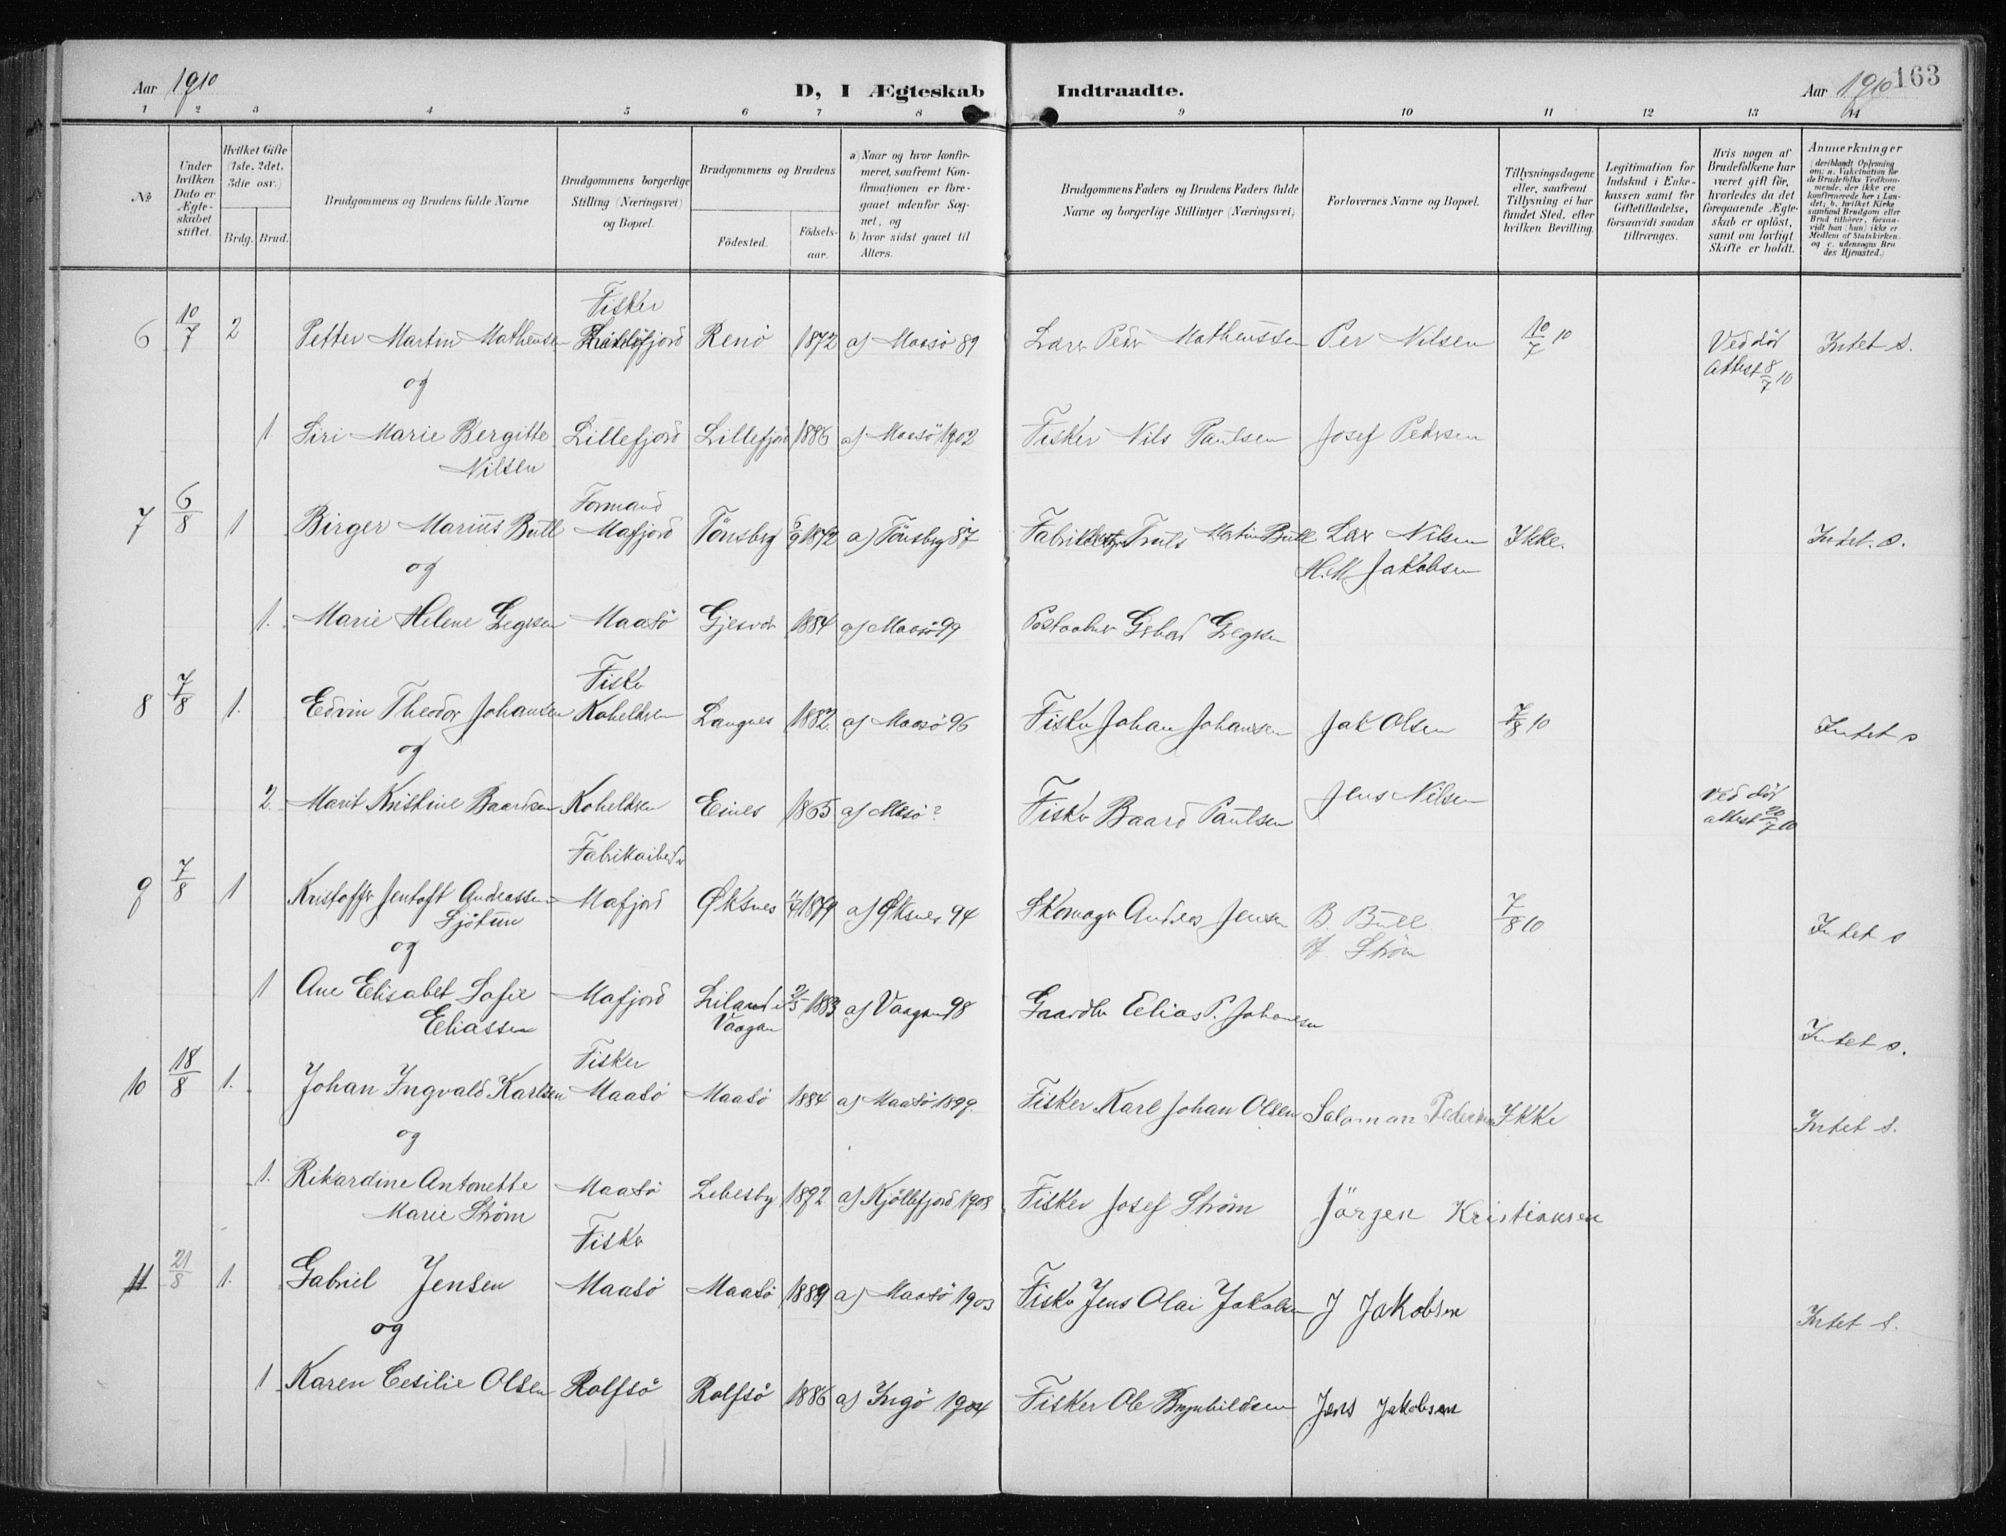 Aar 1910
D, I Ægteskab Indtraadte.
Aar 1910
163
1 2 3 4 5 6 7 8 9 10 11 12 13 14
No
Under hvilken Dato er Ægteskabet stiftet.
Hvilket Gifte (1ste, 2det, 3die osv.)
Brdg. Brud.
Brudgommens og Brudens fulde Navne
Brudgommens borgerlige Stilling (Næringsvei) og Bopæl.
Brudgommens og Brudens
Födested.
Födselsaar.
a) Naar og hvor konfirmeret, saafremt Konfirmationen er foregaaet udenfor Sognet, og
b) hvor sidst gaaet til Alters.
Brudgommens Faders og Brudens Faders fulde Navne og borgerlige Stillinger (Næringsvei)
Forlovernes Navne og Bopæl.
Tillysningsdagene eller, saafremt Tillysning ei har fundet Sted, efter hvilken Bevilling.
Legitimation for Indskud i Enkekassen samt for Giftetilladelse, forsaavidt saadan tiltrænges.
Hvis nogen af Brudefolkene har været gift för, hvorledes da det foregaaende Ægteskab er oplöst, samt om lovligt Skifte er holdt.
Anmerkninger (deriblandt Oplysning om: a. Vakcination for de Brudefolks Vedkommende, der ikke ere konfirmerede her i Landet; b. hvilket Kirkesamfund Brudgom eller Brud tilhörer, forsaavidt han (hun) ikke er Medlem af Statskirken, og c. udensogns Brudes Hjemsted.)
Fisker
6 10/7 2 Petter Martin Matheusen Renö 1872 a) Maasö 89 Peder Matheussen Per Nilsen 10/7 10 Ved död Attest 8/7 10 Intet s.
og
1. Siri Marie Bergitte Nilsen Lillefjord Lillefjord 1886 a) Maasö 1902 Fisker Nils Paulsen Josef Pedersen
Formand
7 6/8 1 Birger Marius Bull Mafjord Tönsberg 1872 a) Tönsbrg 87 Truls Martin Bull Lars Nilsen Ikke. Intet. s.
H. M. Jakobsen
og
1. Marie Helene Maasö Gjesvær 1884 a) Maasö 99
Fisker
8 7/8 1. Edvin Theodor Johansen Langnes 1882. a) Maasö 96 Fisker Johan Johansen Jak Olsen 7/8 10 Intet s
og
2. Marit Kristine Baardsen 1865 a) Masö? Fisker Baard Paulsen Jens Nilsen Ved död attest 20/7 10
Fabrikarbeider
9 7/8 1 Kristoffer Jentoft Andreassen Sjötun Mafjord Øksnes 1879 a) Øksnes 94 Skomager Andreas Jensen B. Bull 7/8 10 Intet s
H. Strøm
og
1 Ane Elisabet Sofie Eliassen Mafjord Liland i Vaagan 1883 a) Vaagan 98 Gaardbr Elias P. Johansen Intet s.
Fisker
10 18/8 1. Johan Ingvald Karlsen Maasö Maasö 1884 a) Maasö 1899. Fisker Karl Johan Olsen Salamon Pedersen Ikke Intet s.
og
1. Rikardine Antonette Marie Strøm Maasö Lebesby 1892 a) Kjöllefjord 1908 Fisker Josef Strøm Jörgen Kristiansen
Fisker
11 21/8 1. Gabriel Jensen Maasö Maasö 1889 a) Maasö 1903 Fisker Jens Olai Jakobsen J Jakobsen Intet s.
og
1 Karen Cesilie Olsen Rolfsö Rolfsö 1886 a) Ingö 1904 Fisker Ole Brynhildsen Jens Jakobsen